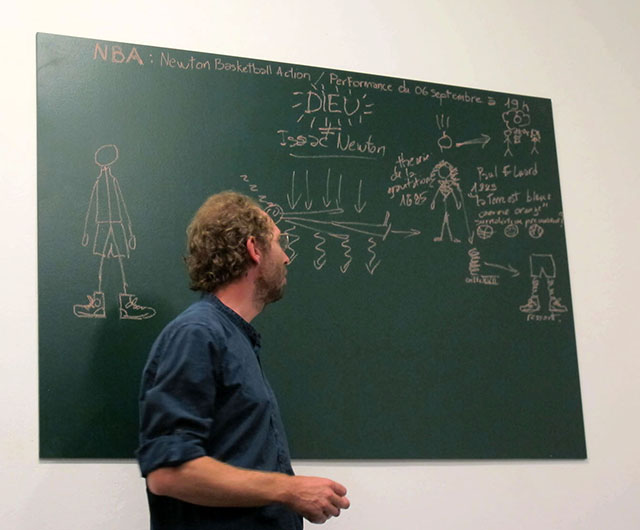 NBA : Newton Basketball Action / Performance du 06 septembre à 19h
DIEU
Isaac Newton
z z z
théorie
de la
gravitation
1685
Paul Eluard
1929
la Terre est bleue
comme une orange
ressort